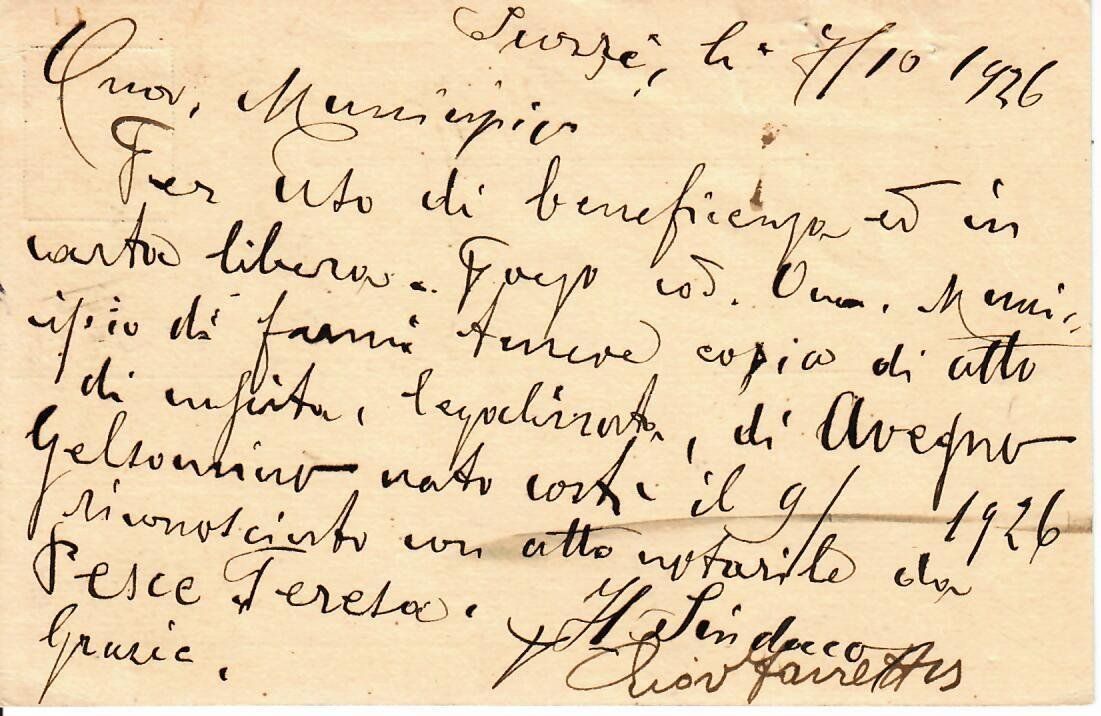 li 7/10 1926
Onor. Municipio
Per uso di beneficenza ed in
carta libera. Prego cod. On. Muni-
cipio di farmi tenere copia di atto
di nascita, legalizzata, di Avegno
Gelsomino nato costì il 9/ 1926
riconosciuto con atto notarile da
Pesce Teresa.
Grazie.
Il Sindaco